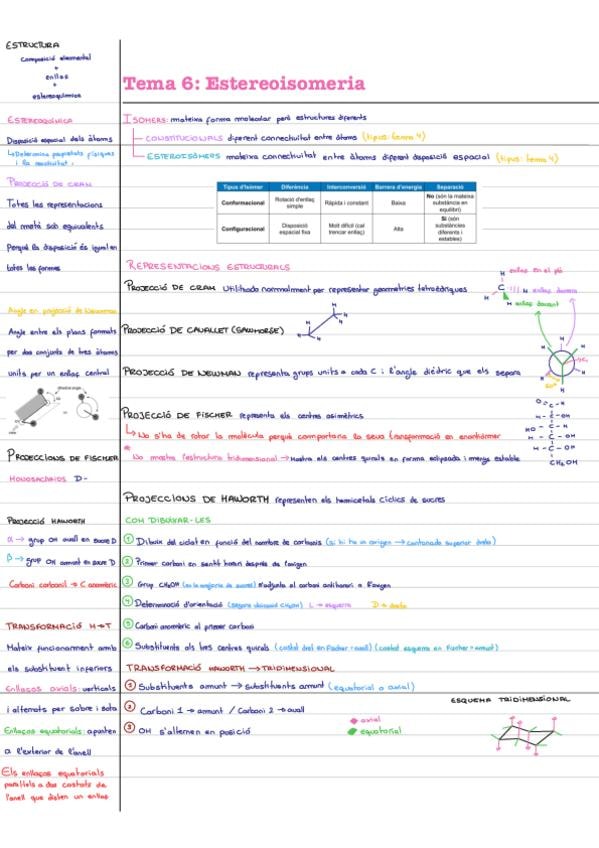 ESTRUCTURA
Composició elemental
+
enllaç
+
estereoquímica
ESTEREOQUÍMICA
Disposició espacial dels àtoms
↳ Determina propietats físiques
i la reactivitat
PROJECCIÓ DE CRAM
Totes les representacions
del metà són equivalents
Perquè la disposició és igual en
totes les formes
Angle en projecció de Newman
Angle entre els plans formats
per dos conjunts de tres àtoms
units per un enllaç central
PROJECCIONS DE FISCHER
MONOSACÀRIDS D-
PROJECCIÓ HAWORTH
α → grup OH avall en sucre D
β → grup OH amunt en sucre D
Carboni carbonil → C anomèric
TRANSFORMACIÓ H→T
Mateix funcionament amb
els substituent inferiors
Enllaços axials: verticals
i alternats per sobre i sota
Enllaços equatorials: apunten
a l'exterior de l'anell
Els enllaços equatorials
paral·lels a dos costats de
l'anell que disten un enllaç
Tema 6: Estereoisomeria
ISOMERS: mateixa forma molecular però estructures diferents
CONSTITUCIONALS diferent connectivitat entre àtoms (tipus: tema 4)
ESTEROISÒMERS mateixa connectivitat entre àtoms diferent disposició espacial (tipus: tema 4)
Tipus d'Isòmer Diferència Interconversió Barrera d'energia Separació
Conformacional Rotació d'enllaç simple Ràpida i constant Baixa No (són la mateixa substància en equilibri)
Configuracional Disposició espacial fixa Molt difícil (cal trencar enllaç) Alta Sí (són substàncies diferents i estables)
REPRESENTACIONS ESTRUCTURALS
PROJECCIÓ DE CRAM Utilitzada normalment per representar geometries tetraèdriques
H enllaç en el pla
C
H enllaç darrera
H
H enllaç davant
PROJECCIÓ DE CAVALLET (SAWHORSE)
PROJECCIÓ DE NEWMAN representa grups units a cada C i l'angle díedric que els separa
60°
PROJECCIÓ DE FISCHER representa els centres asimètrics
↳ No s'ha de rotar la molècula perquè comportaria la seva transformació en enantiòmer
* No mostra l'estructura tridimensional → Mostra els centres quirals en forma eclipsada i menys estable
H - C - OH
HO - C - H
H - C - OH
H - C - OH
CH₂OH
PROJECCIONS DE HAWORTH representen els hemicetals cíclics de sucres
COM DIBUIXAR-LES
① Dibuix del ciclat en funció del nombre de carbonis (si hi ha un oxigen → cantonada superior dreta)
② Primer carboni en sentit horari després de l'oxigen
③ Grup CH₂OH (en la majoria de sucres) s'adjunta al carboni antihorari a l'oxigen
④ Determinació d'orientació (segons ubicació CH₂OH) L → esquerra D → dreta
⑤ Carboni anomèric al primer carboni
⑥ Substituents als tres centres quirals (costat dret en Fischer → avall) (costat esquerra en Fischer → amunt)
TRANSFORMACIÓ HAWORTH → TRIDIMENSIONAL
① Substituents amunt → substituents amunt (equatorial o axial)
② Carboni 1 → amunt / Carboni 2 → avall
③ OH s'alternen en posició
axial
equatorial
ESQUEMA TRIDIMENSIONAL